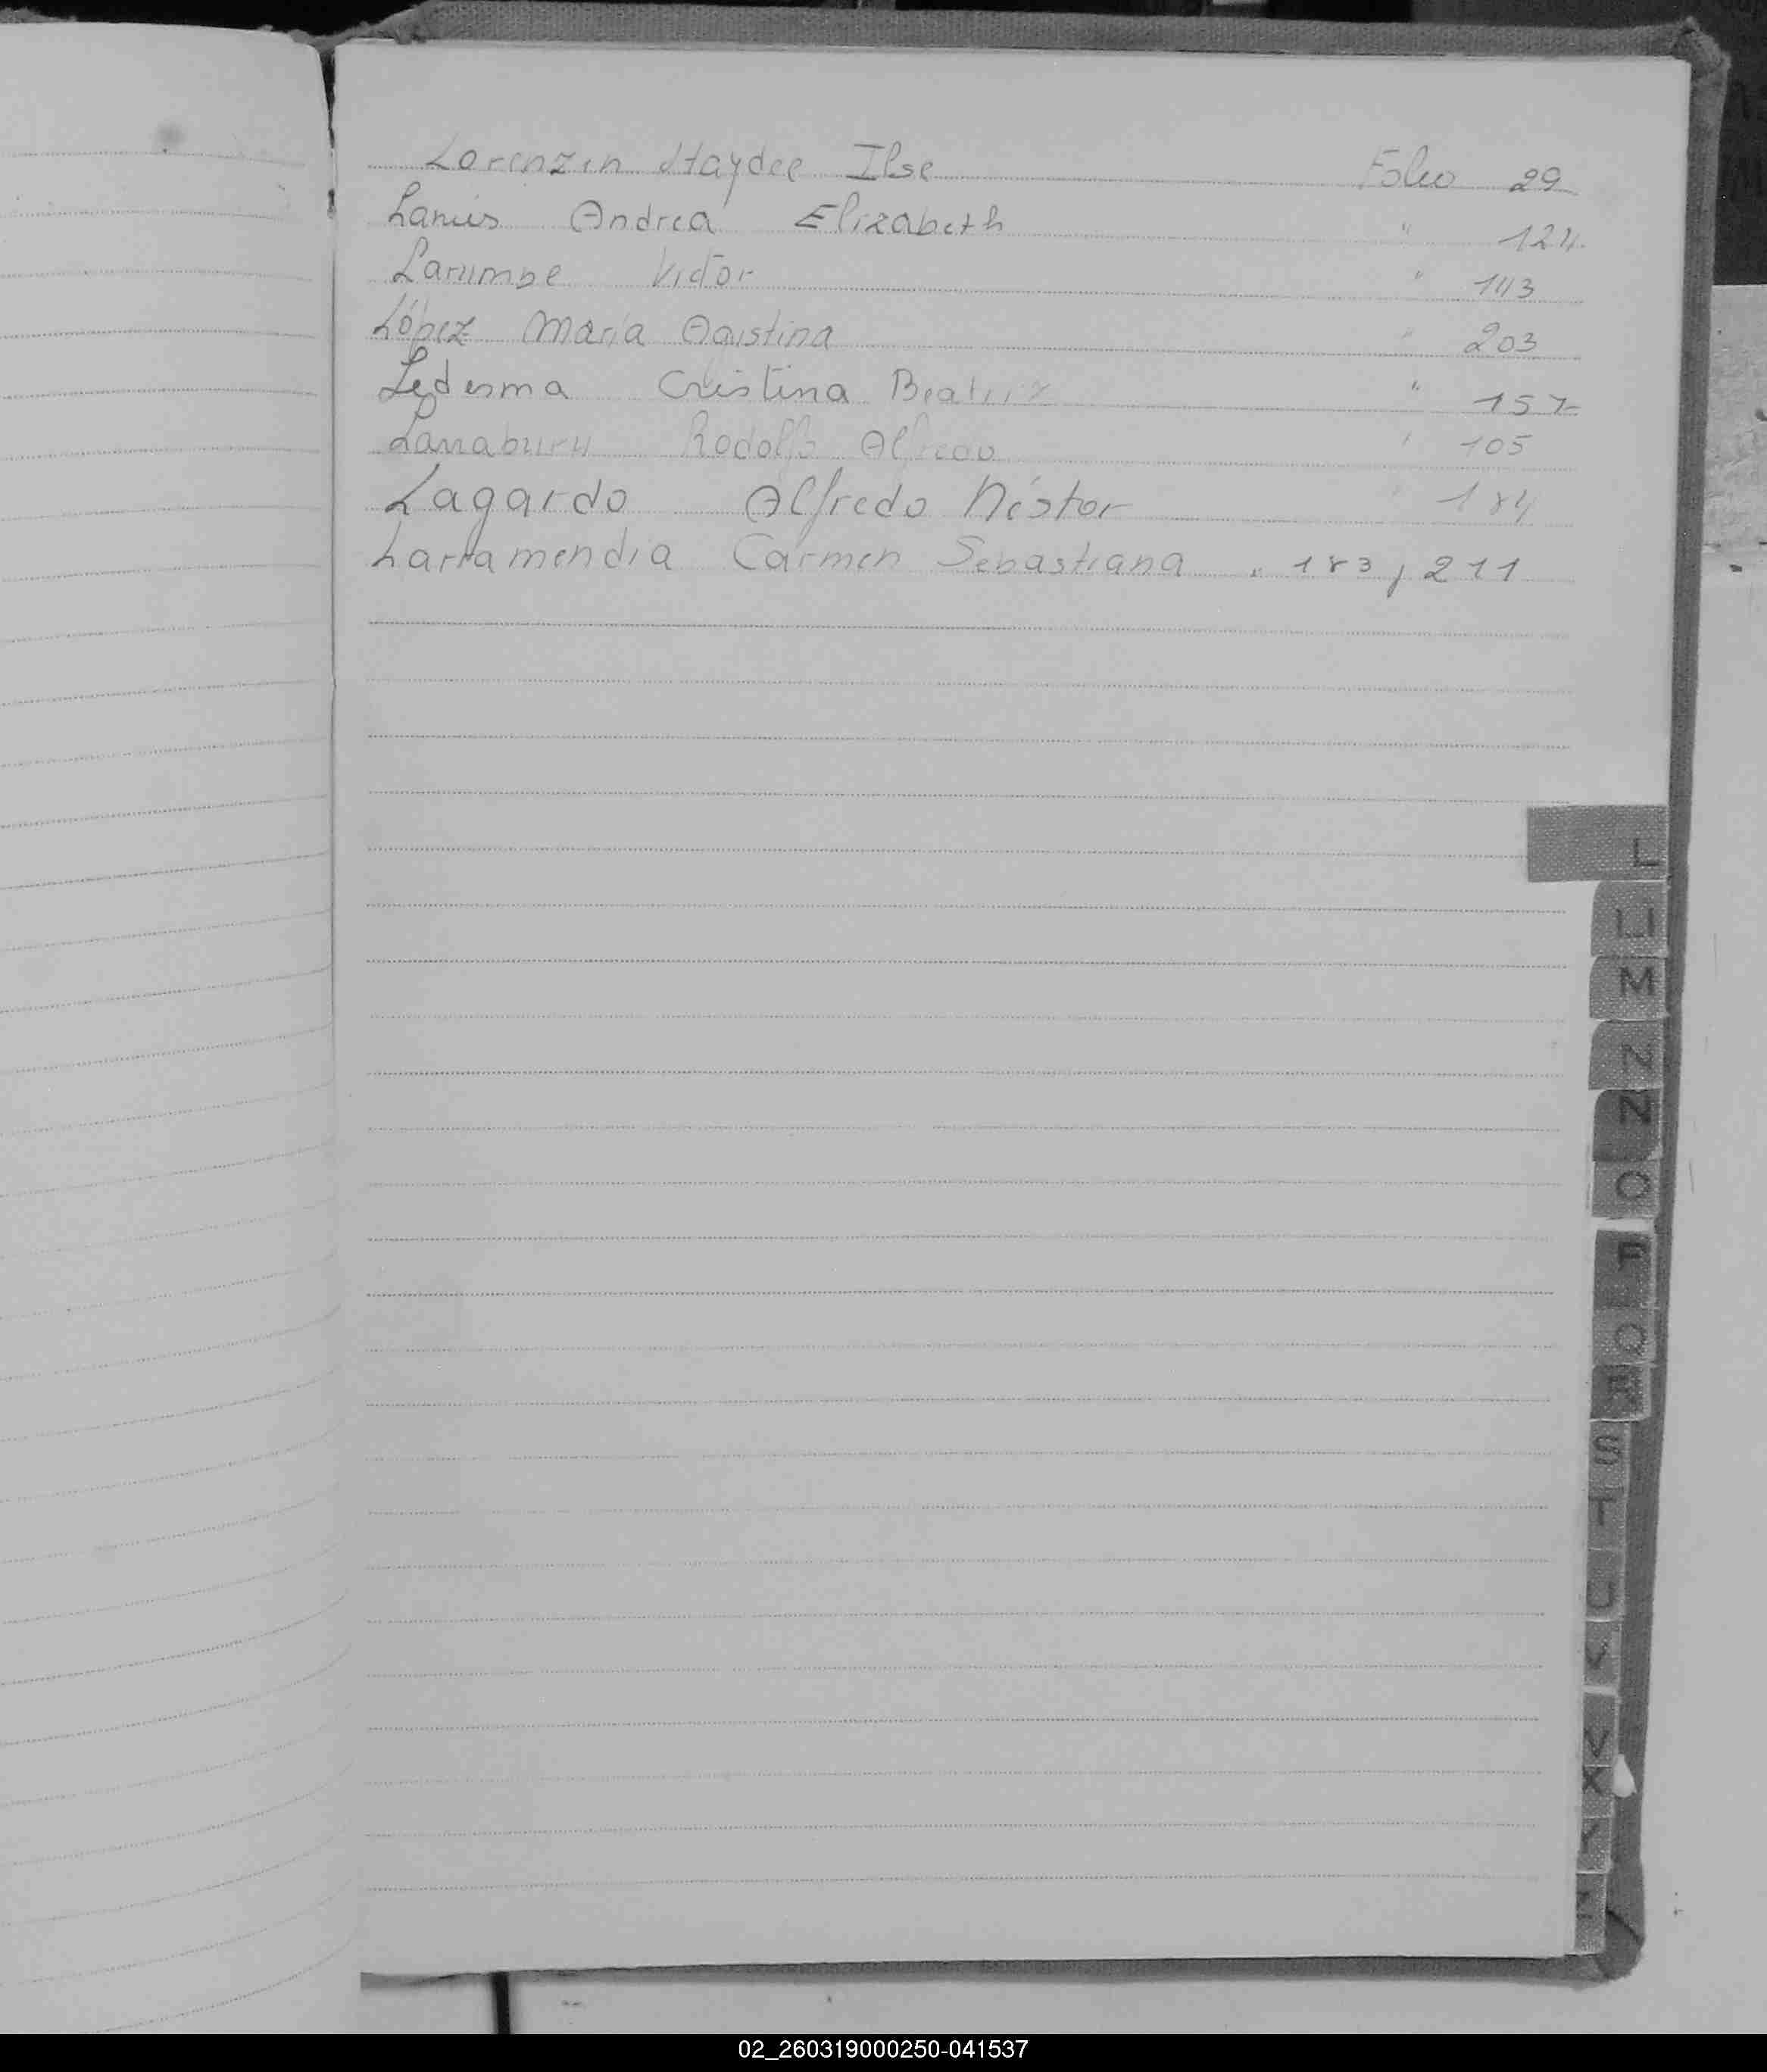 Lorenzin Haydee Ilse Folio 29
Lanús Andrea Elizabeth " 124
Larumbe Victor " 143
López María Agustina " 203
Ledesma Cristina Beatriz " 157
Rodolfo Alfredo " 105
Lagardo Alfredo Néstor " 184
Larramendia Carmen Sebastiana " 183, 211
L
LL
M
N
Ñ
O
P
Q
R
S
T
U
V
W
X
Y
Z
02_260319000250-041537